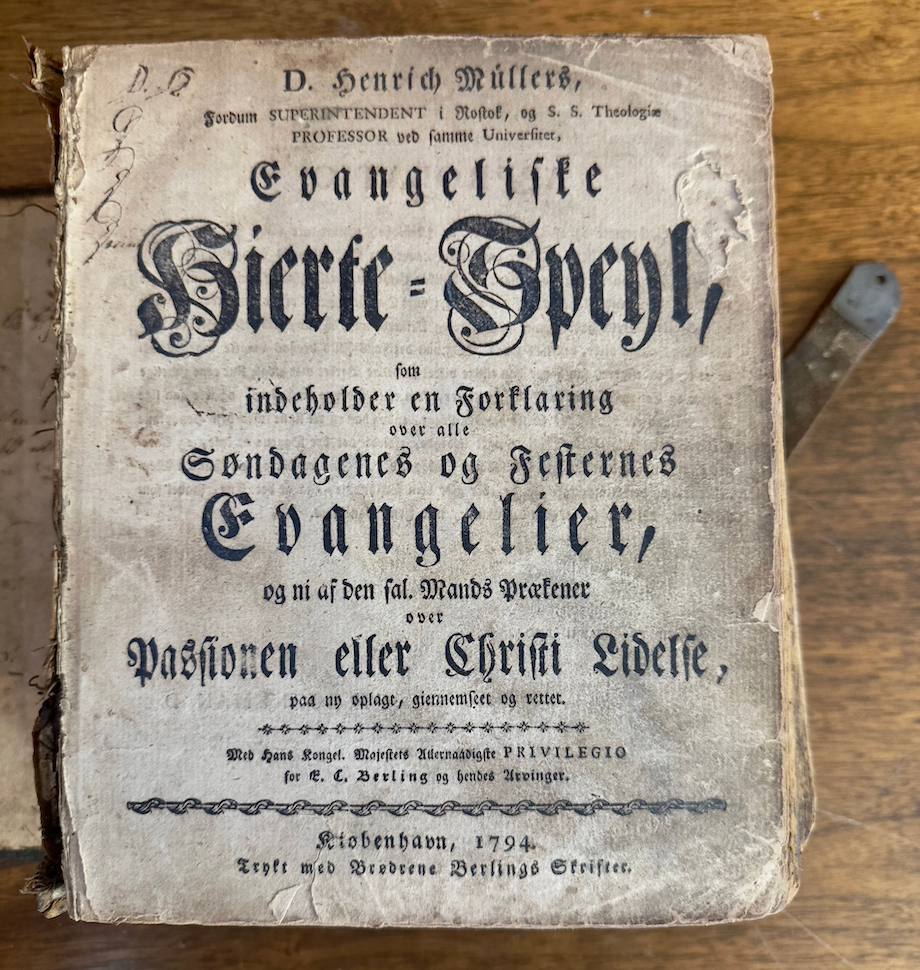 D. Henrich Müllers,
Fordum SUPERINTENDENT i Rostok, og S. S. Theologiæ
PROFESSOR ved samme Universitet,
Evangeliske
Hierte-Speyl,
som
indeholder en Forklaring
over alle
Søndagenes og Festernes
Evangelier,
og ni af den sal. Mands Prækener
over
Passionen eller Christi Lidelse,
paa ny oplagt, giennemseet og rettet.
Med Hans Kongel. Majestets Allernaadigste PRIVILEGIO
for E. C. Berling og hendes Arvinger.
Kiøbenhavn, 1794.
Trykt med Brødrene Berlings Skrifter.